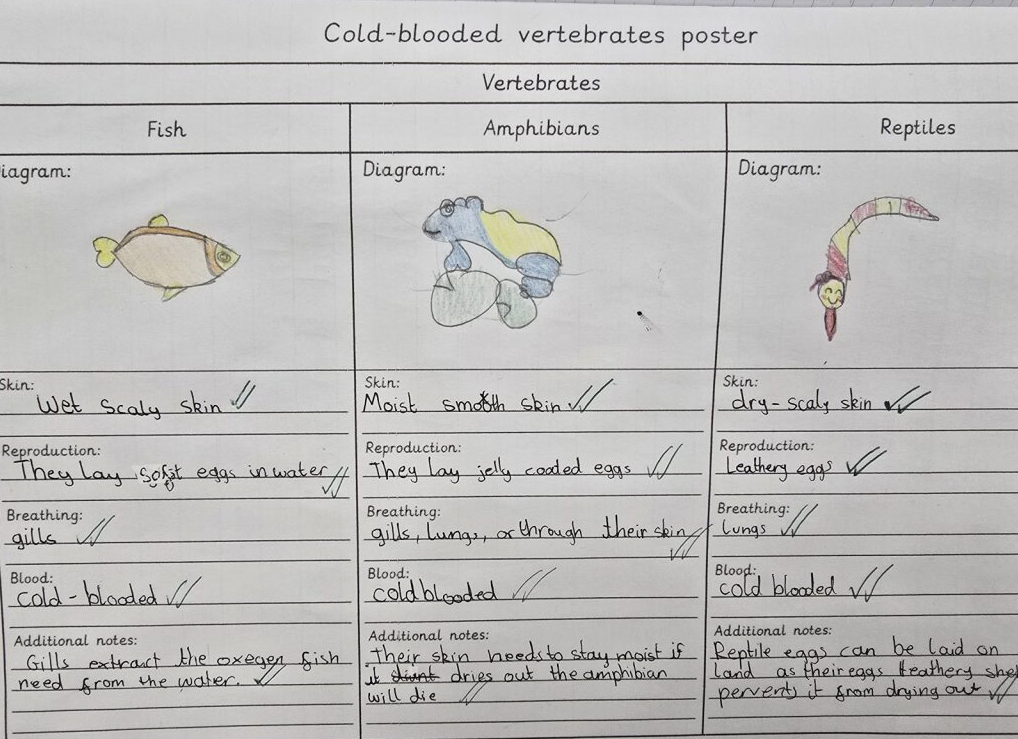 Cold-blooded vertebrates poster
Vertebrates
Fish
Amphibians
Reptiles
iagram:
Diagram:
Diagram:
Skin:
Wet scaly skin
Skin:
Moist smooth skin
Skin:
dry-scaly skin
Reproduction:
They lay soft eggs in water
Reproduction:
They lay jelly coaded eggs
Reproduction:
Leathery eggs
Breathing:
gills
Breathing:
gills, lungs, or through their skin
Breathing:
lungs
Blood:
cold-blooded
Blood:
cold blooded
Blood:
cold blooded
Additional notes:
Gills extract the oxegen fish
need from the water.
Additional notes:
Their skin needs to stay moist if
it dries out the amphibian
will die
Additional notes:
Reptile eggs can be laid on
land as their eggs leathery shel
pervents it from drying out